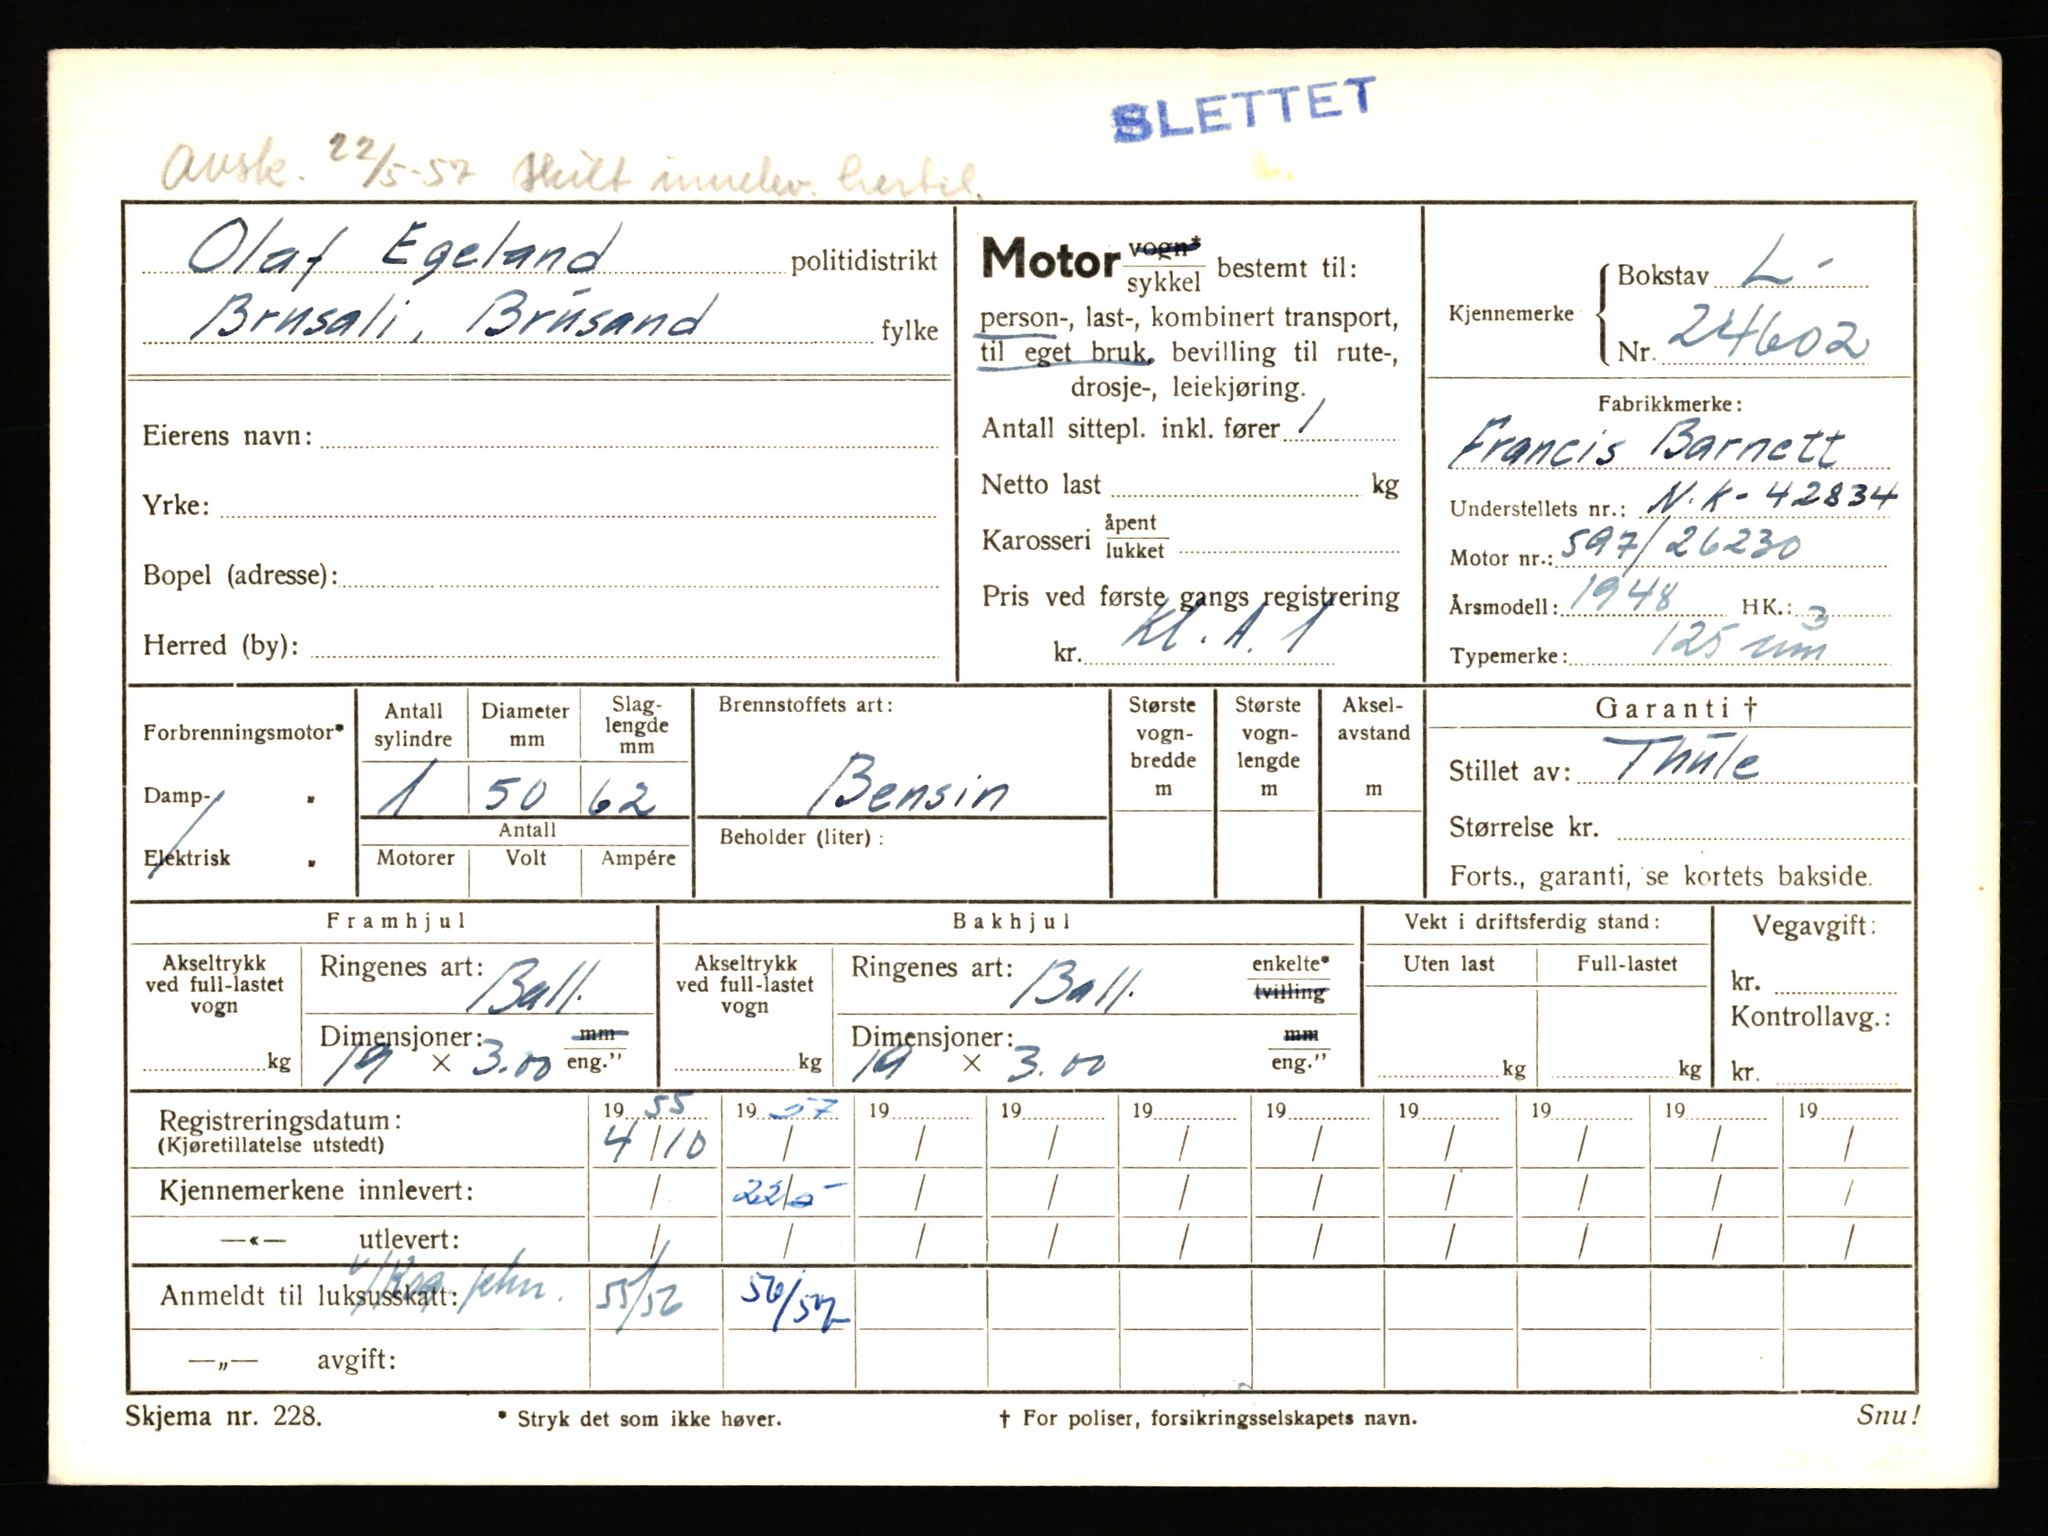 SLETTET
Avsk. 22/5-57 Skilt innlev. hertil.
Olaf Egeland politidistrikt
Brusali, Brusand fylke
Eierens navn:
Yrke:
Bopel (adresse):
Herred (by):
Motor vogn*/sykkel bestemt til:
person-, last-, kombinert transport,
til eget bruk, bevilling til rute-,
drosje-, leiekjøring.
Antall sittepl. inkl. fører 1
Netto last kg
Karosseri åpent/lukket
Pris ved første gangs registrering
kr. Kl. A. 1
Kjennemerke
Bokstav L-
Nr. 24602
Fabrikkmerke:
Francis Barnett
Understellets nr.: N.K- 42834
Motor nr.: 597/26230
Årsmodell: 1948 HK.:
Typemerke: 125 mm3
Forbrenningsmotor*
Damp- „
Elektrisk „
Antall sylindre Diameter mm Slag-lengde mm
1 50 62
Antall
Motorer Volt Ampére
Brennstoffets art:
Bensin
Beholder (liter):
Største vogn-bredde m
Største vogn-lengde m
Aksel-avstand m
Garanti †
Stillet av: Thule
Størrelse kr.
Forts., garanti, se kortets bakside.
Framhjul
Akseltrykk ved full-lastet vogn
kg
Ringenes art: Ball.
Dimensjoner: mm
19 × 3.00 eng.”
Bakhjul
Akseltrykk ved full-lastet vogn
kg
Ringenes art: Ball. enkelte*
tvilling
Dimensjoner: mm
19 × 3.00 eng.”
Vekt i driftsferdig stand:
Uten last Full-lastet
kg kg
Vegavgift:
kr.
Kontrollavg.:
kr.
Registreringsdatum: 19 55 19 57 19 19 19 19 19 19 19 19
(Kjøretillatelse utstedt) 4/10 / / / / / / / / /
Kjennemerkene innlevert: / 22/5 / / / / / / / /
—«— utlevert: / / / / / / / / / /
Anmeldt til luksusskatt: 55/56 56/57
—„— avgift:
Skjema nr. 228. * Stryk det som ikke høver. † For poliser, forsikringsselskapets navn. Snu!